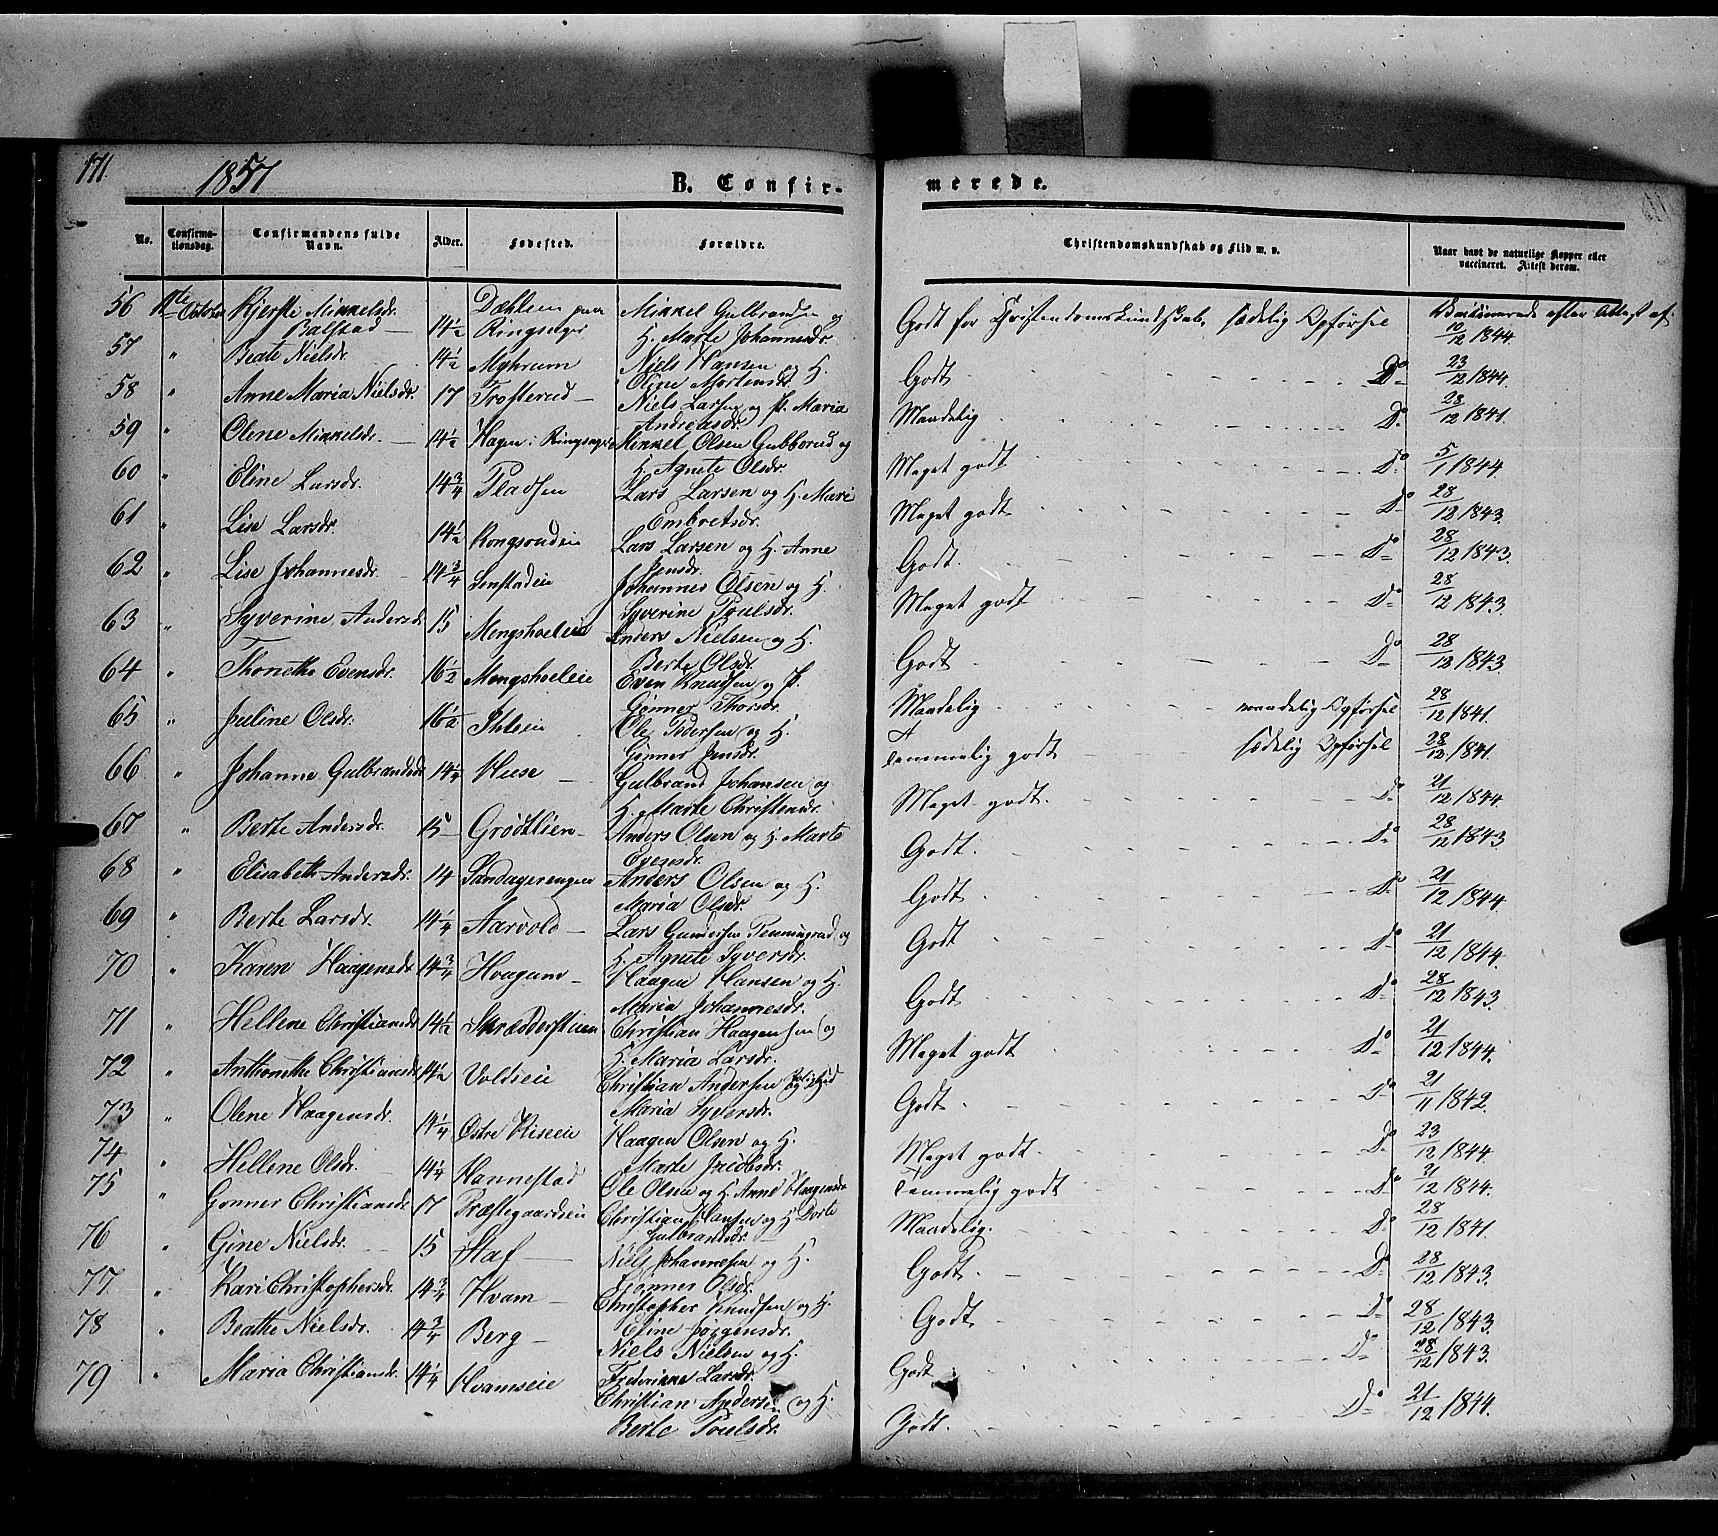 171
1857
B. Confir-
merede.
No.
Confirma-
tionsdag.
Confirmandens fulde
Navn.
Alder.
Fødested.
Forældre.
Christendomskundskab og Flid m. v.
Naar havt de naturlige Kopper eller
vaccineret. Attest derom.
56 Kjerstie Mikkelsdr. Balstad 14 1/2 Dæhlen paa Ringsager Mikkel Gulbrandsen og H. Marte Johannesdr. Godt for Christendomskundskab, sædelig Opførsel 10/12 1844
57 " Beate Nielsdr. 14 1/2 Myhrum Niels Hansen og H. Oline Mortensdr. Godt Do 23/12 1844
58 " Anne Maria Nielsdr. 17 Trosterud Niels Larsen og P. Maria Andreasdr. Maadelig Do 28/12 1841.
59 " Olene Mikkelsdr. 14 1/2 Hagen i Ringsager Mikkel Olsen Gubberud og H. Agnete Olsdr. Meget godt Do 5/1 1844
60 " Eline Larsdr. 14 3/4 Pladsen Lars Larsen og H. Mari Embretsdr. Meget godt Do 28/12 1843.
61 " Lise Larsdr. 14 1/2 Lars Larsen og H. Anne Jensdr. Godt. Do 28/12 1843.
62 " Lise Johannesdr. 14 3/4 Johannes Olsen og H. Syverine Poulsdr. Meget godt Do 28/12 1843.
63 " Syverine Andersdr. 15 Mengshoeleie Anders Nielsen og H. Berte Olsdr. Godt Do 28/12 1843.
64 " Thonethe Evensdr. 16 1/2 Mengshoeleie Even Knudsen og P. Gønner Thorsdr. Maadelig maadelig Opførsel 28/12 1841.
65 " Juline Olsdr. 16 1/2 Ole Pedersen og H. Gønner Jensdr. Temmelig godt sædelig Opførsel 28/12 1841.
66 " Johanne Gulbrandsdr. 14 1/4 Huse Gulbrand Johansen og H. Marte Christensdr. Meget godt. Do 21/12 1844
67 " Berte Andersdr. 15 Grødtlien Anders Olsen og H. Marte Evensdr. Godt. Do 28/12 1843
68 " Elisabeth Andersdr. 14 Sandagerengen Anders Olsen og H. Maria Olsdr. Godt Do 21/12 1844.
69 " Berte Larsdr. 14 1/4 Aarvold Lars Gundersen og H. Agnete Syversdr. Godt Do 21/12 1844.
70 " Karen Haagensdr. 14 3/4 Haagen Hansen og H. Maria Johannesdr. Godt Do 28/12 1843.
71 " Hellene Christiansdr. 14 1/2 Skrædderstuen Christian Haagensen og H. Maria Larsdr. Meget godt Do 21/12 1844.
72 " Anthonethe Christiansdr. 14 1/2 Voldseie Christian Andersen og Maria Syversdr. Godt. Do 21/11 1842.
73 " Olene Haagensdr. 14 1/4 Østre Kiseeie Haagen Olsen og H. Marte Jacobsdr. Meget godt. Do 23/12 1844.
74 " Hellene Olsdr. 14 1/4 Hannestad Ole Olsen og H. Anne Haagensdr. Temmelig godt Do 21/12 1844.
75 " Gønner Christiansdr. 17 Præstegaardseie Christian Hansen og H. Dorte Gulbrandsdr. Maadelig. Do 28/12 1841.
76 " Gine Nielsdr. 15 Staf Niels Johannesen og H. Gønner Olsdr. Godt. Do 28/12 1843.
77 " Kari Christophersdr. 14 3/4 Hvam Christopher Knudsen og H. Eline Jørgensdr. Godt Do 28/12 1843.
78 " Beathe Nielsdr. 14 3/4 Berg Niels Nielsen og H. Frederikke Larsdr. Godt Do 28/12 1843.
79 " Maria Christiansdr. 14 1/4 Hvamseie Christian Andersen og H. Berte Poulsdr. Godt. Do 21/12 1844.